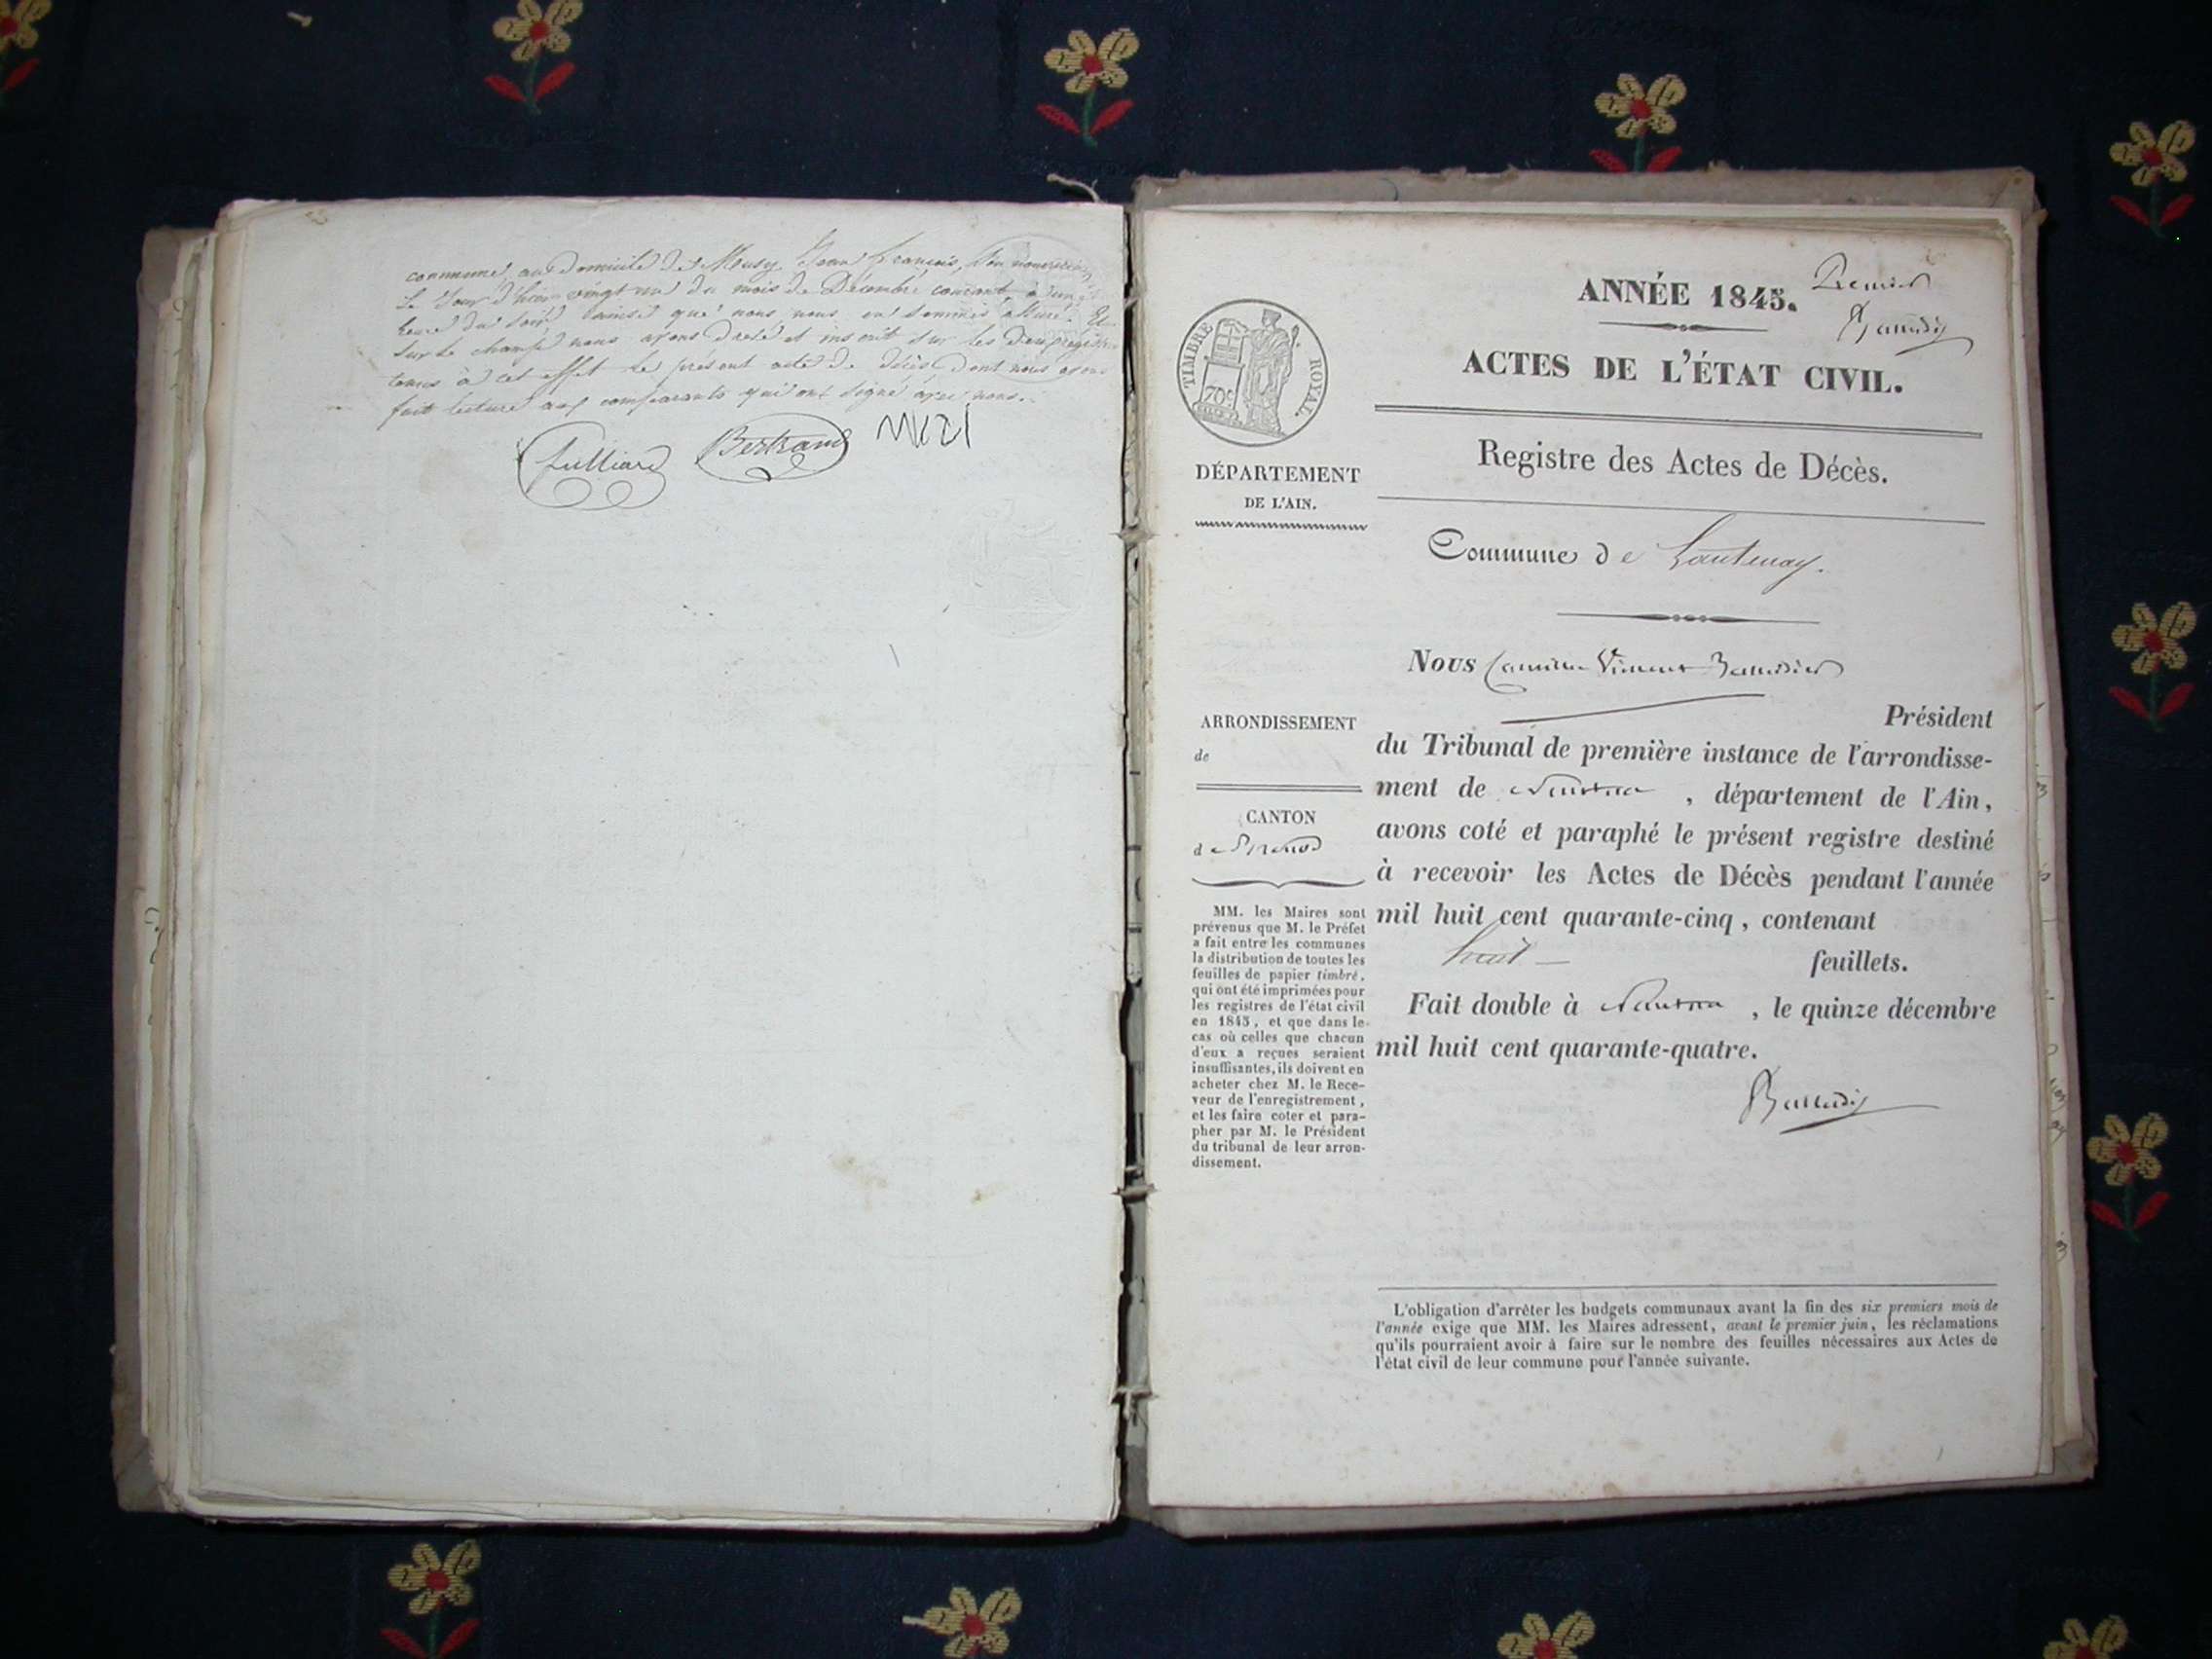 commune, au domicile de Musy Jean françois,
le Jour d'hier vingt un du mois de Décembre courant, à
heure du soir ainsi que nous nous en sommes assuré. Et
sur le champ nous avons dressé et inscrit sur les deux registres
tenus à cet effet le présent acte de décès dont nous avons
fait lecture aux comparants qui ont signé avec nous.
Julliard Bertrand
ANNÉE 1845. Premier
ACTES DE L'ÉTAT CIVIL.
TIMBRE ROYAL.
70c
Registre des Actes de Décès.
DÉPARTEMENT
DE L'AIN.
Commune de Lantenay.
Nous Camille Vincent
Président
ARRONDISSEMENT
de
du Tribunal de première instance de l'arrondisse-
ment de Nantua, département de l'Ain,
avons coté et paraphé le présent registre destiné
à recevoir les Actes de Décès pendant l'année
mil huit cent quarante-cinq, contenant
huit feuillets.
Fait double à Nantua, le quinze décembre
mil huit cent quarante-quatre.
CANTON
de Brenod
MM. les Maires sont
prévenus que M. le Préfet
a fait entre les communes
la distribution de toutes les
feuilles de papier timbré,
qui ont été imprimées pour
les registres de l'état civil
en 1845, et que dans le
cas où celles que chacun
d'eux a reçues seraient
insuffisantes, ils doivent en
acheter chez M. le Rece-
veur de l'enregistrement,
et les faire coter et para-
pher par M. le Président
du tribunal de leur arron-
dissement.
L'obligation d'arrêter les budgets communaux avant la fin des six premiers mois de
l'année exige que MM. les Maires adressent, avant le premier juin, les réclamations
qu'ils pourraient avoir à faire sur le nombre des feuilles nécessaires aux Actes de
l'état civil de leur commune pour l'année suivante.